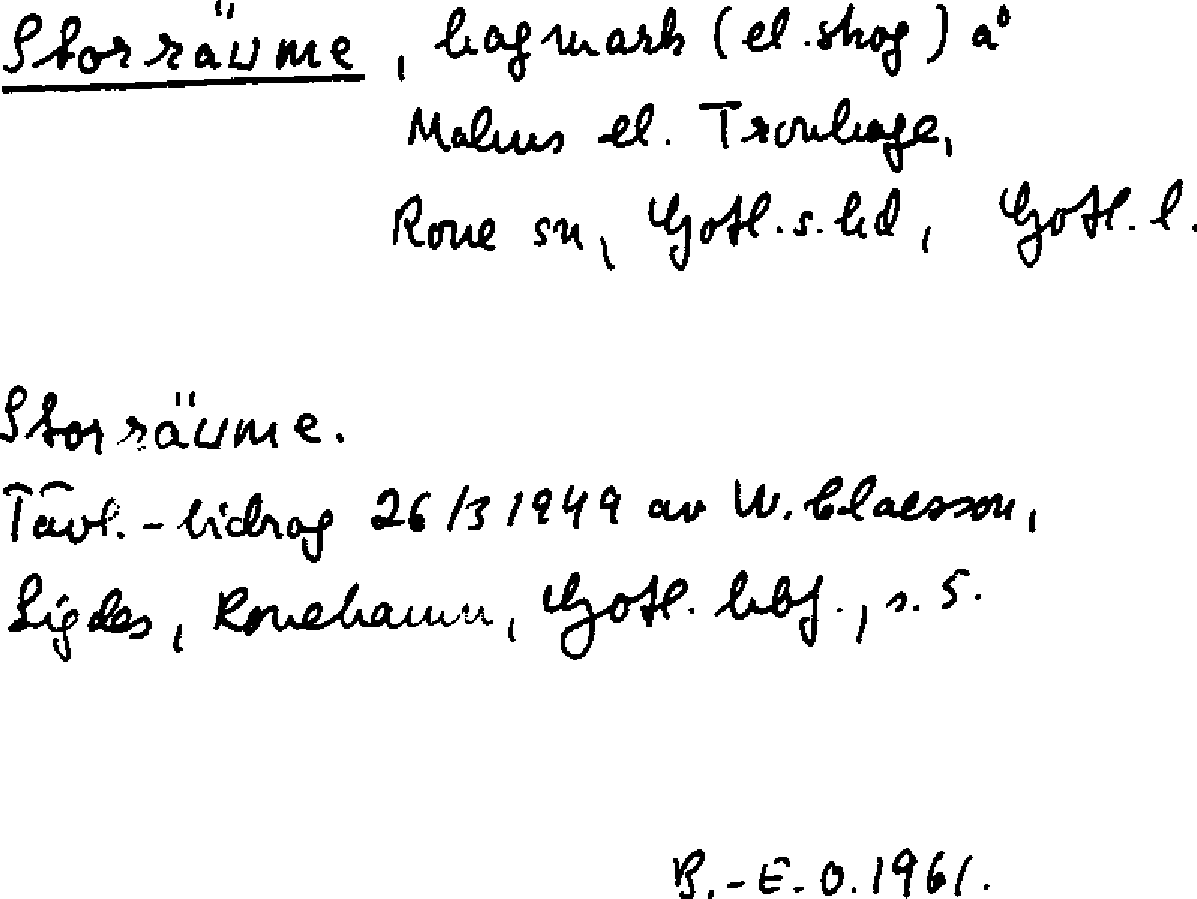 Storräume, hagmark (el. skog) å
Malms el. Tronhage,
Rone sn, Gotl. s. hd, Gotl. l.
Storräume.
Tävl.-bidrag 26/3 1949 av W. Claesson,
Sigdes, Ronehamn, Gotl. hbf., s. 5.
B.-E. O. 1961.